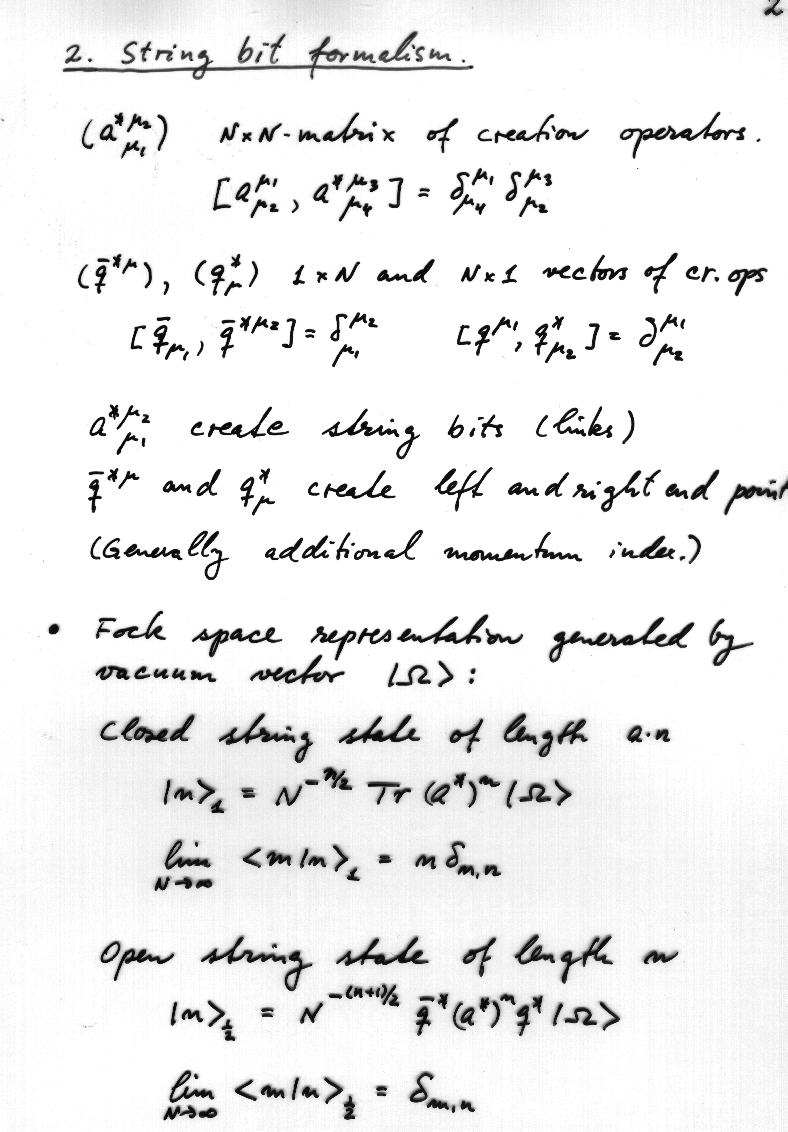 2
2. String bit formalism.
(a*^μ₂_μ₁) N×N-matrix of creation operators.
[a^μ₁_μ₂, a*^μ₃_μ₄] = δ^μ₁_μ₄ δ^μ₃_μ₂
(q̄*^μ), (q*_μ) 1×N and N×1 vectors of cr. ops
[q̄_μ₁, q̄*^μ₂] = δ^μ₂_μ₁ [q^μ₁, q*_μ₂] = ∂^μ₁_μ₂
a*^μ₂_μ₁ create string bits (links)
q̄*^μ and q*_μ create left and right end point
(Generally additional momentum index.)
• Fock space representation generated by
vacuum vector |Ω> :
Closed string state of length a·n
|n>₁ = N^(-n/2) Tr (a*)^n |Ω>
lim_(N→∞) <m|n>₁ = n δ_m,n
Open string state of length n
|n>_½ = N^(-(n+1)/2) q̄*(a*)^n q* |Ω>
lim_(N→∞) <m|n>_½ = δ_m,n